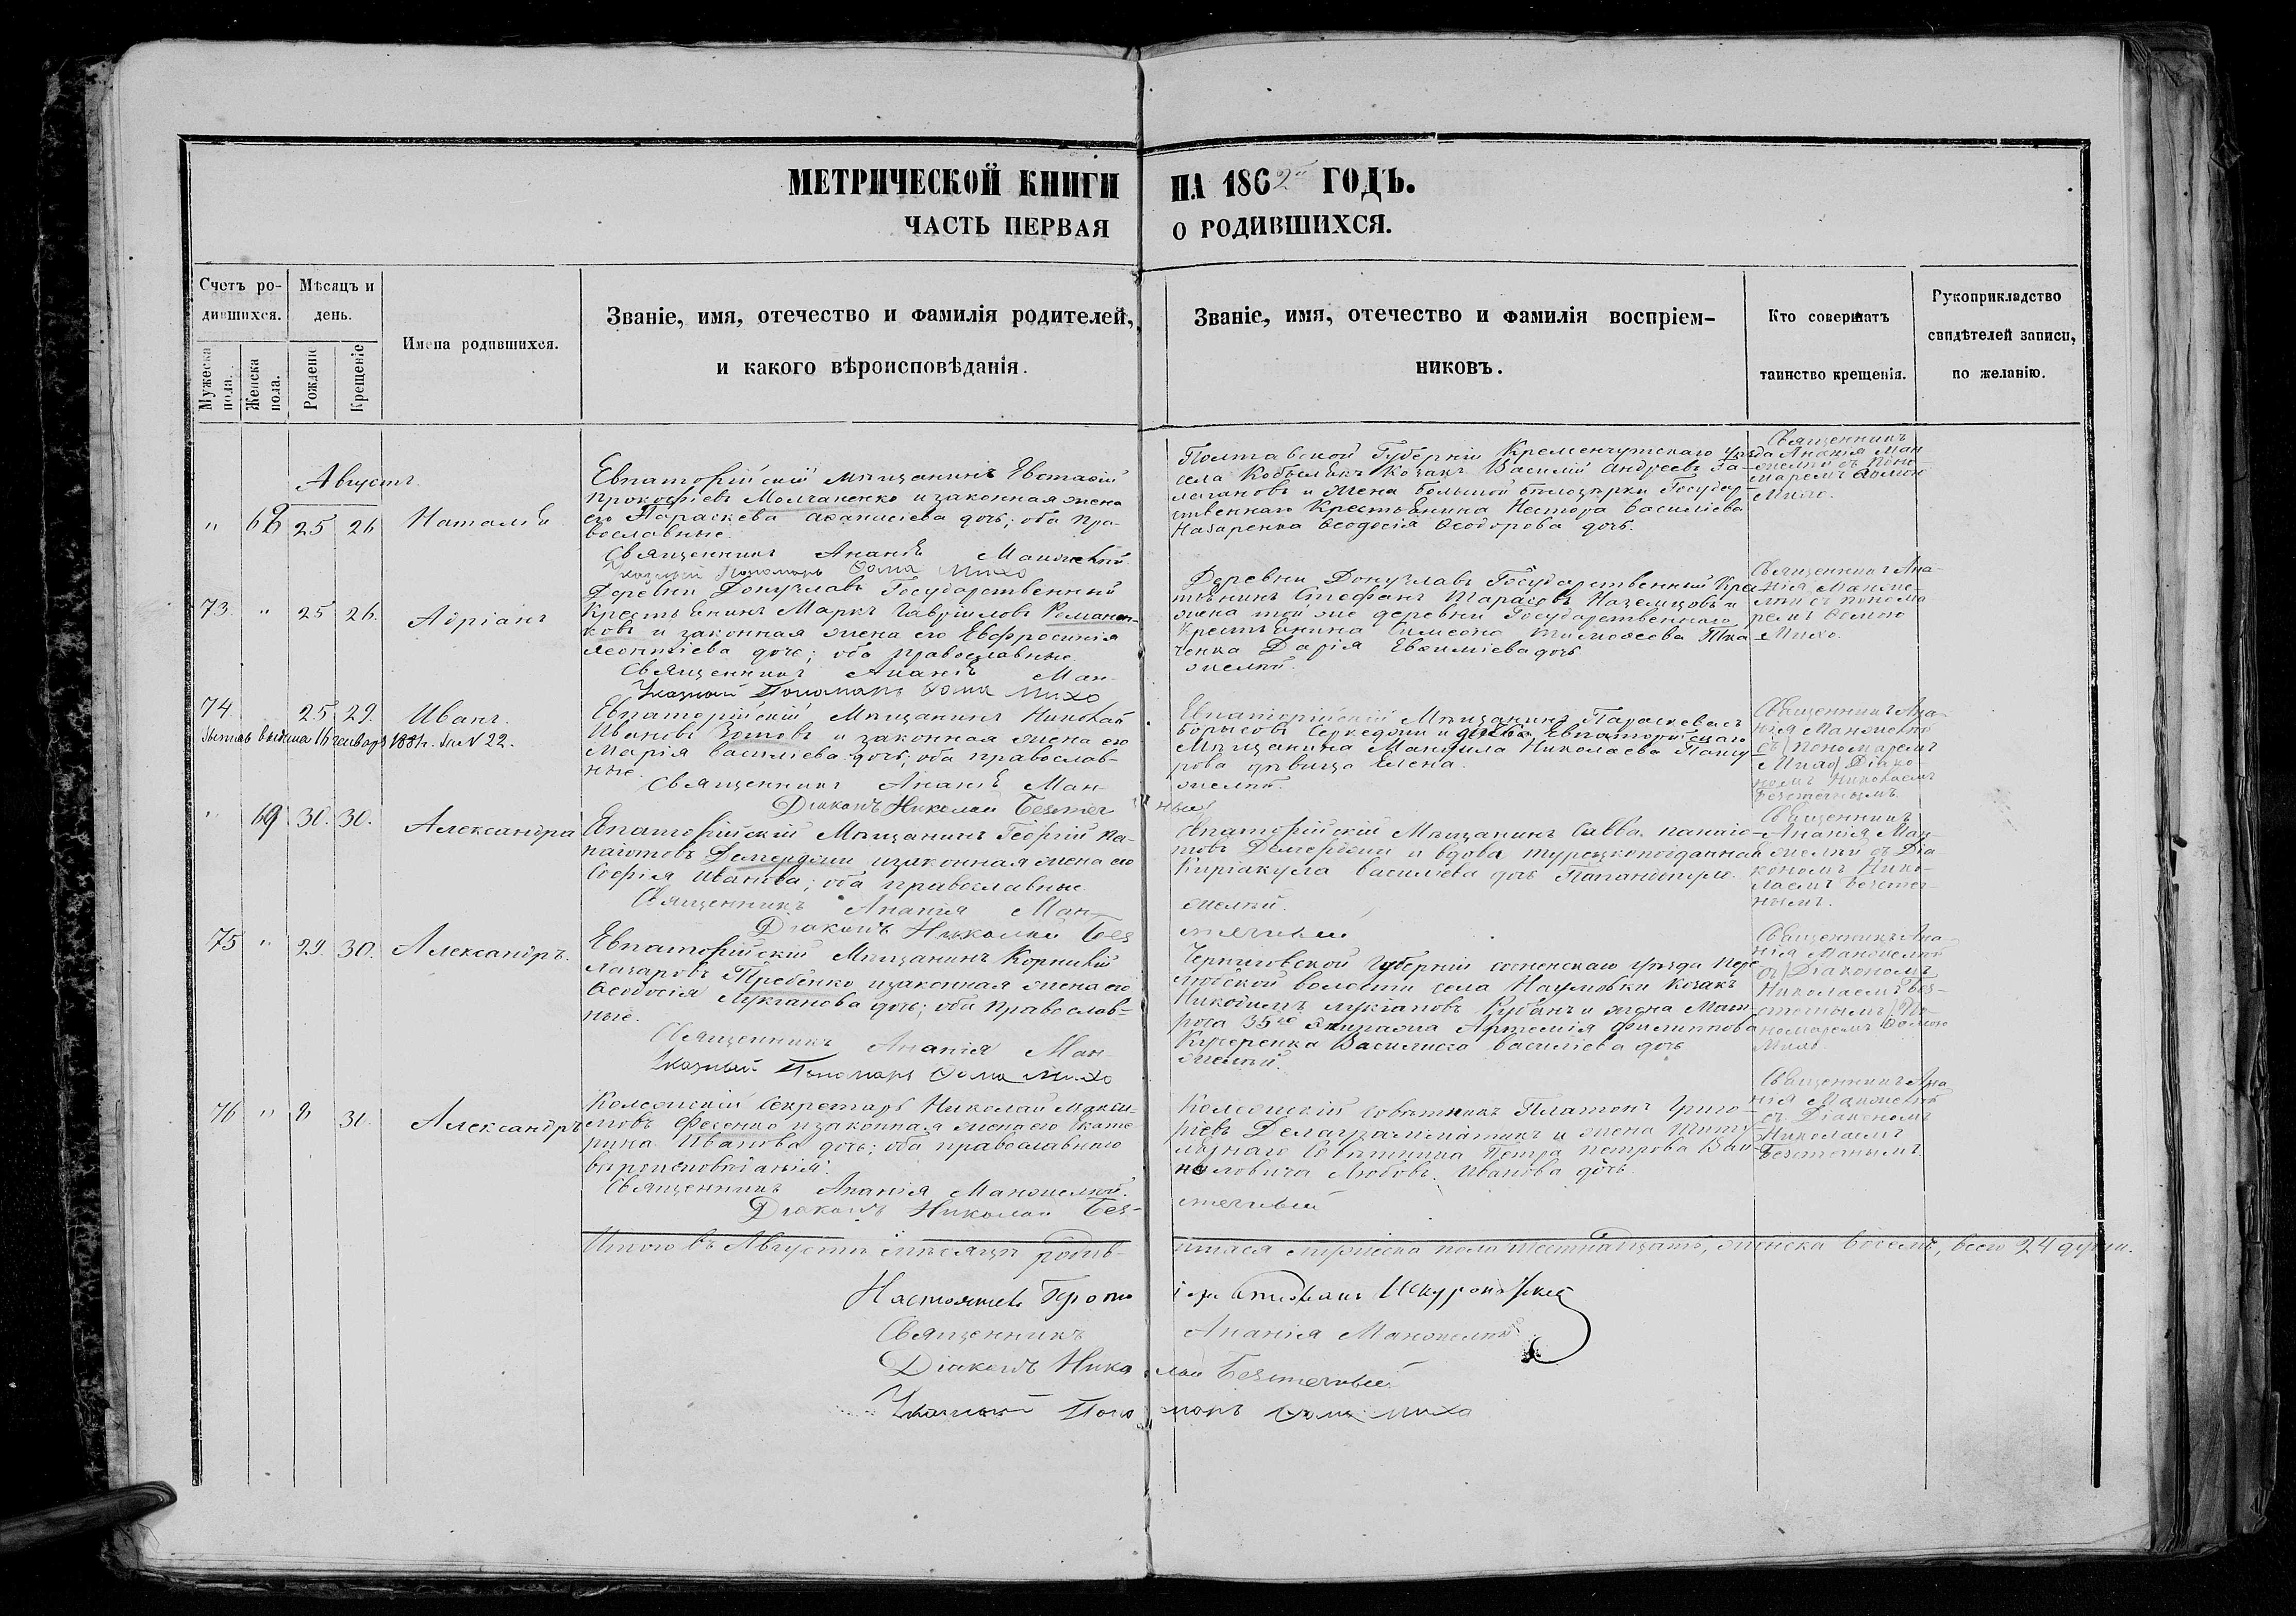 МЕТРИЧЕСКОЙ КНИГИ НА 1862 ГОДЪ.
ЧАСТЬ ПЕРВАЯ О РОДИВШИХСЯ.
Счетъ ро-
дившихся.
Мужеска пола.
Женска пола.
Мѣсяцъ и
день.
Рожденіе
Крещеніе
Имена родившихся.
Званіе, имя, отечество и фамилія родителей,
и какого вѣроисповѣданія.
Званіе, имя, отечество и фамилія воспріем-
никовъ.
Кто совершатъ
таинство крещенія.
Рукоприкладство
свидѣтелей записи,
по желанію.
Августъ
" 68 25 26 Наталія
Евпаторійскій мѣщанинъ Евстафій
Прокофіевъ Молчаненко и законная жена
его Параскева Аѳанасіева дочь; оба пра-
вославные.
Священникъ Ананія Манжелѣй
Указный Пономарь Ѳома Михо
Полтавской Губерніи Кременчугскаго уѣзда
села Кобелякъ Козакъ Василій Андреевъ Га-
лагановъ и жена большой бѣлозерки Государ-
ственнаго Крестьянина Нестора Василіева
Назаренка Ѳеодосія Ѳеодорова дочь.
Священникъ
Ананія Ман
желѣй съ Поно
маремъ Ѳомою
Михо.
73. " 25 26. Адріанъ
Деревни Донузлавъ Государственный
Крестьянинъ Маркъ Гавріиловъ Романен-
ковъ и законная жена его Евфросинія
Леонтіева дочь; оба православные.
Священникъ Ананія Ман-
Указный Пономарь Ѳома Михо
Деревни Донузлавъ Государственный Крес
тьянинъ Стефанъ Тарасовъ и
жена той же деревни Государственнаго
Крестьянина Симеона Тимоѳеева Тка
ченка Дарія Евѳиміева дочь
желѣй.
Священникъ Ана-
нія Манже
лѣй съ понома
ремъ Ѳомою
Михо.
74. 25 29. Иванъ.
выдана 16 января 1881г. за N 22.
Евпаторійскій Мѣщанинъ Николай
Ивановъ Зотовъ и законная жена его
Марія Василіева дочь; оба православ-
ные.
Священникъ Ананія Ман-
Діаконъ Николай Безтеч
Евпаторійскій Мѣщанинъ Параскевасъ
Борисовъ и Евпаторійскаго
Мѣщанина Мануила Николаева
дѣвица Елена.
желѣй.
ный
Священникъ Ана-
нія Манжелѣй
съ пономаремъ
Михо Діако
номъ Николаемъ
Безтечнымъ.
" 69 30. 30. Александра
Евпаторійскій Мѣщанинъ Георгій Па-
наіотовъ Демерджи и законная жена его
Софія Иванова; оба православные.
Священникъ Ананія Ман-
Діаконъ Николай Без
Евпаторійскій Мѣщанинъ Савва Панаіо-
товъ Демерджи и вдова турецкоподданная
Киріакула Василіева дочь Папандопуло.
желѣй.
течный
Священникъ
Ананія Ман-
желѣй съ Діа
кономъ Нико-
лаемъ Безтеч-
нымъ.
75 " 29. 30. Александръ.
Евпаторійскій Мѣщанинъ Корнилій
Лазаровъ Гребенко и законная жена его
Ѳеодосія Лукіанова дочь; оба Православ-
ные.
Священникъ Ананія Ман-
Указный Пономарь Ѳома Михо
Черниговской Губерніи сосненскаго уѣзда Пере
любской волости села Наумовки Козакъ
Никодимъ Лукіановъ Кубанъ и жена Мат
роса 35го Экипажа Артемія Филиппова
Кучеренка Василиса Василіева дочь
желѣй.
Священникъ Ана-
нія Манжелѣй
съ Діакономъ
Николаемъ Без-
течнымъ По-
номаремъ Ѳомою
Михо
76 " 8 31. Александръ
Колежскій Секретарь Николай Макси-
мовъ Фесенко и законная жена его Екате-
рина Иванова дочь; оба православнаго
вѣроисповѣданія.
Священникъ Ананія Манжелѣй.
Діаконъ Николай Без-
Колежскій совѣтникъ Платонъ Григо-
ріевъ Делаграмматикъ и жена Титу-
лярнаго Совѣтника Петра Петрова
Любовь Иванова дочь.
течный
Священникъ Ана
нія Манжелѣй
съ Діакономъ
Николаемъ
Безтечнымъ.
Итого въ Августѣ мѣсяцѣ родив-шихся мужеска пола шестнадцать, женска восемь, всего 24 души.
Настоятель Прото іерей Стефанъ
Священникъ Ананія Манжелѣй
Діаконъ Нико лай Безтечный
Указный Поно марь Ѳома Михо